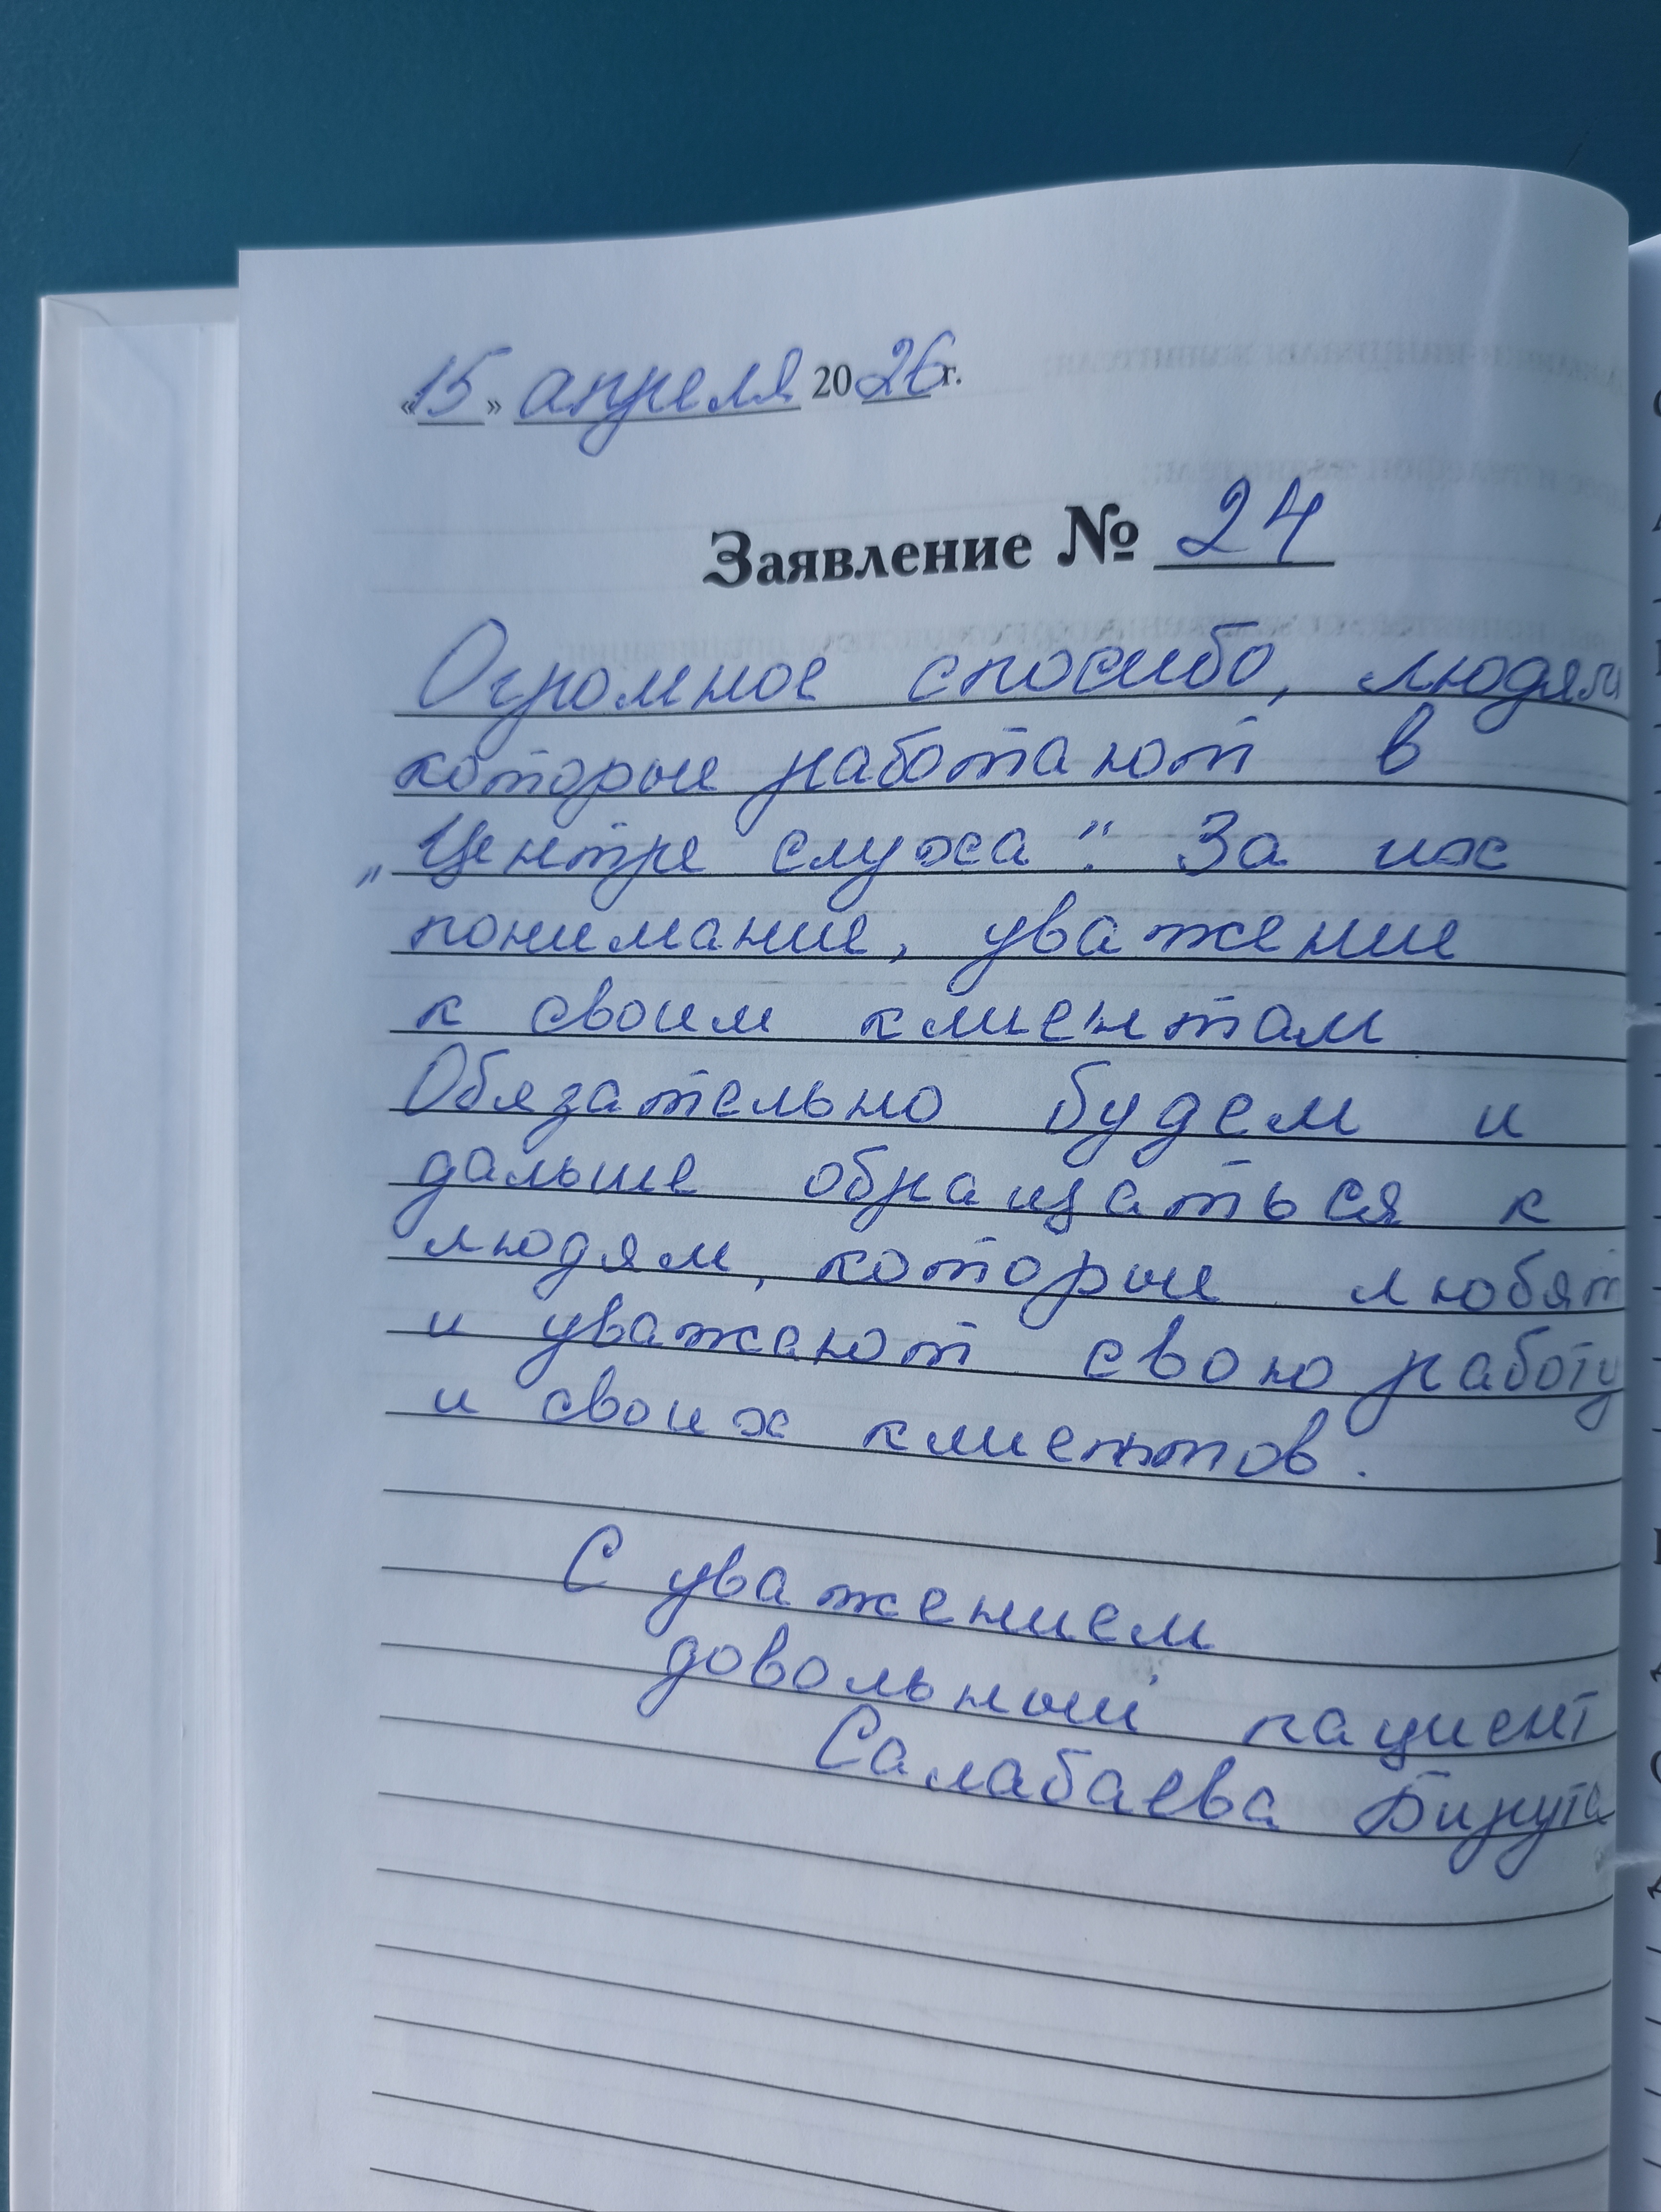 «15» апреля 2026 г.
Заявление № 24
Огромное спасибо, людям
которые работают в
„Центре слуха“. За их
понимание, уважение
к своим клиентам
Обязательно будем и
дальше обращаться к
людям, которые любят
и уважают свою работу
и своих клиентов.
С уважением
довольный пациент
Салабаева Бирута